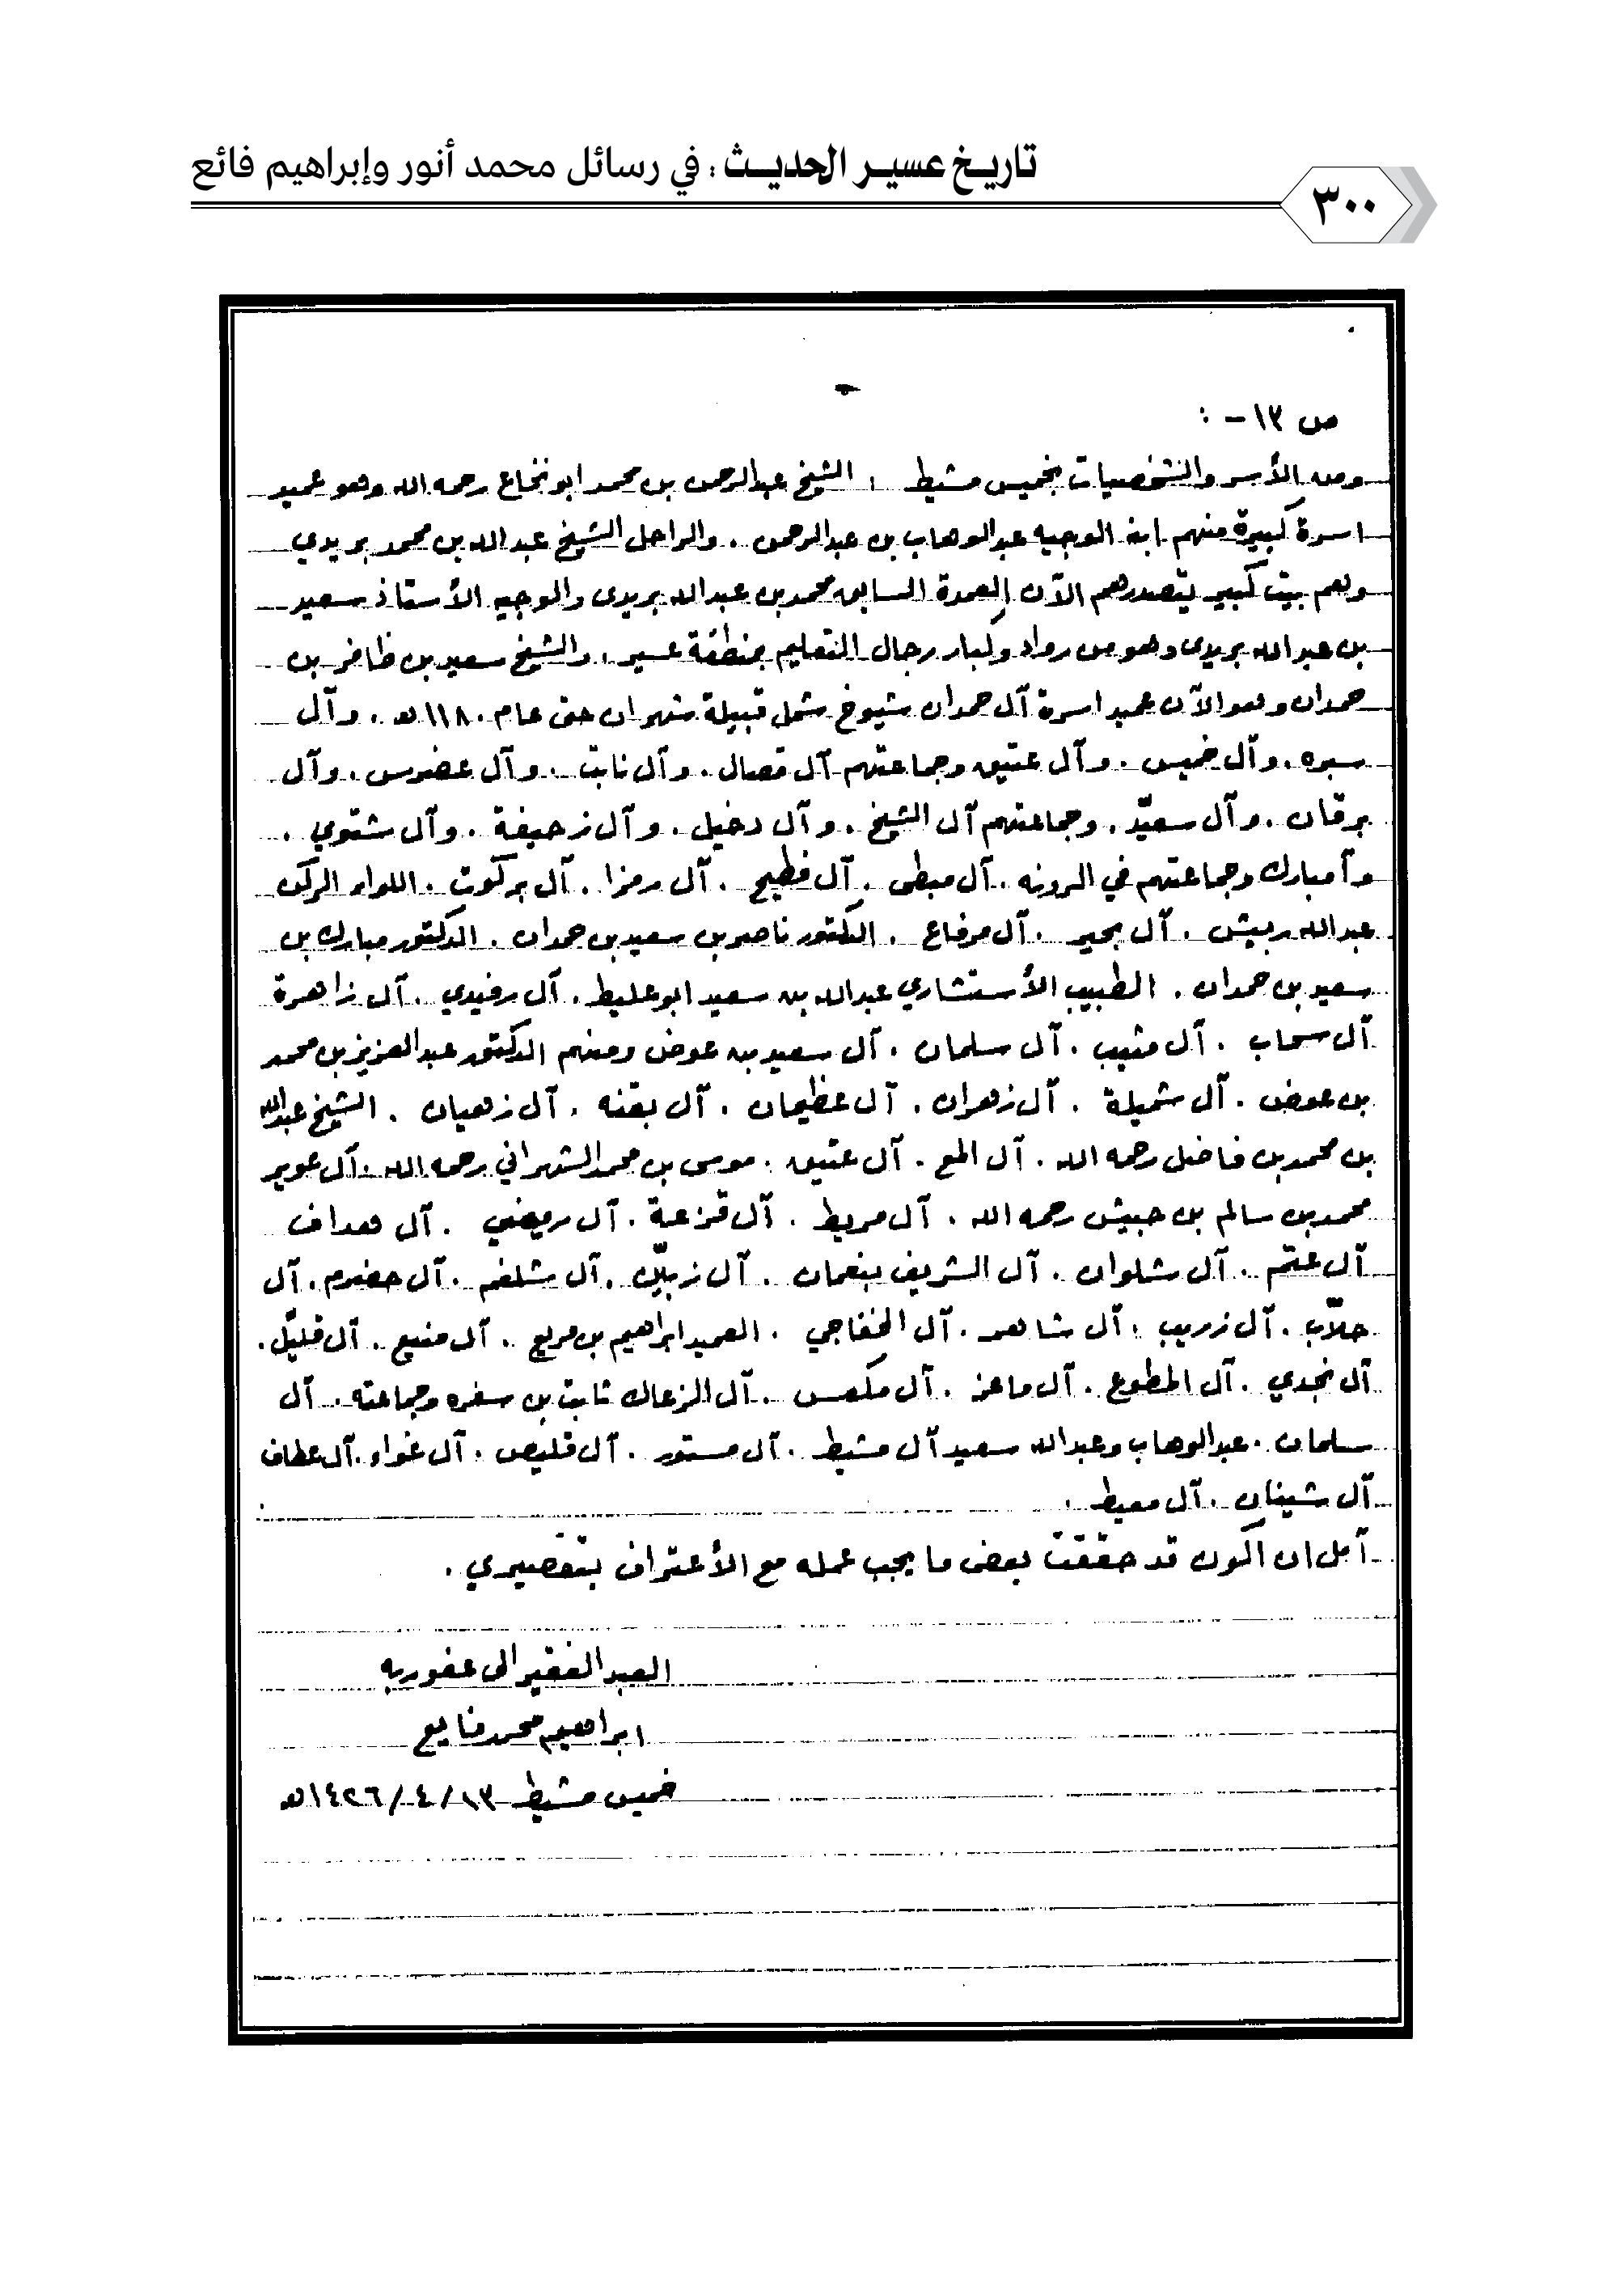 تاريخ عسير الحديث : في رسائل محمد أنور وإبراهيم فائع
٣٠٠
ص ١٣ - :
ومن الأسر والشخصيات بخميس مشيط : الشيخ عبدالرحمن بن محمد ابو نخاع رحمه الله وهو عميد
اسرة كبيرة منهم ابنه الوجيه عبدالوهاب بن عبدالرحمن . والراحل الشيخ عبدالله بن محمد بريدي
ولهم بيت كبير يتصدرهم الآن العمدة السابق محمد بن عبدالله بريدي والوجيه الأستاذ سعيد
بن عبدالله بريدي وهو من رواد وكبار رجال التعليم بمنطقة عسير ، والشيخ سعيد بن ظافر بن
حمدان وهو الآن عميد اسرة آل حمدان شيوخ شمل قبيلة شهران حتى عام ١١٨٠هـ . وآل
سبره . وآل خميس . وآل عتيق وجماعتهم آل قصال . وآل نابت . وآل عضرس . وآل
برقان . وآل سعيّد . وجماعتهم آل الشيخ . وآل دخيل . وآل زحيفة . وآل شتوي .
وآمبارك وجماعتهم في الرونه . آل مبطي . آل فطيح . آل رمزا . آل بركوت . اللواء الركن
عبدالله ربيش . آل بحير . آل مرفاع . الدكتور ناصر بن سعيد بن حمدان . الدكتور مبارك بن
سعيد بن حمدان . الطبيب الأستشاري عبدالله بن سعيد ابو عليط . آل رفيدي . آل زاهرة
آل سحاب . آل مثيب . آل سلمان . آل سعيد بن عوض ومنهم الدكتور عبدالعزيز بن محمد
بن عوض . آل شميلة . آل زهران . آل عظيمان . آل بقنه . آل زهيان . الشيخ عبدالله
بن محمد بن فاضل رحمه الله . آل المع . آل عتيق . موسى بن محمد الشهراني رحمه الله . آل عوير
محمد بن سالم بن حبيش رحمه الله . آل مريط . آل قزعة . آل رميضي . آل هداف
آل عتم . آل شلوان . آل الشريف بنعمان . آل زبيلان . آل شلغم . آل حضرم . آل
حلاّب . آل زريب . آل شاهر . آل الخفاجي . العميد ابراهيم بن مريع . آل منيع . آل قليّل .
آل نجدي . آل المطوع . آل ماعز . آل ملعس . آل الزعاك ثابت بن سفره وجماعته . آل
سلمان . عبدالوهاب وعبدالله سعيد آل مشيط . آل مستور . آل قليص . آل غواء . آل عطاف
آل شينان . آل معيط .
آمل ان اكون قد حققت بعض ما يجب عمله مع الأعتراف بتقصيري .
العبد الفقير الى عفو ربه
ابراهيم محمد فايع
خميس مشيط ١٣/٤/١٤٢٦هـ